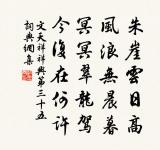 朱崖雲日高
風浪無晨暮
冥冥翠龍駕
今復在何許
文天祥祥興第三十五
詞典網集